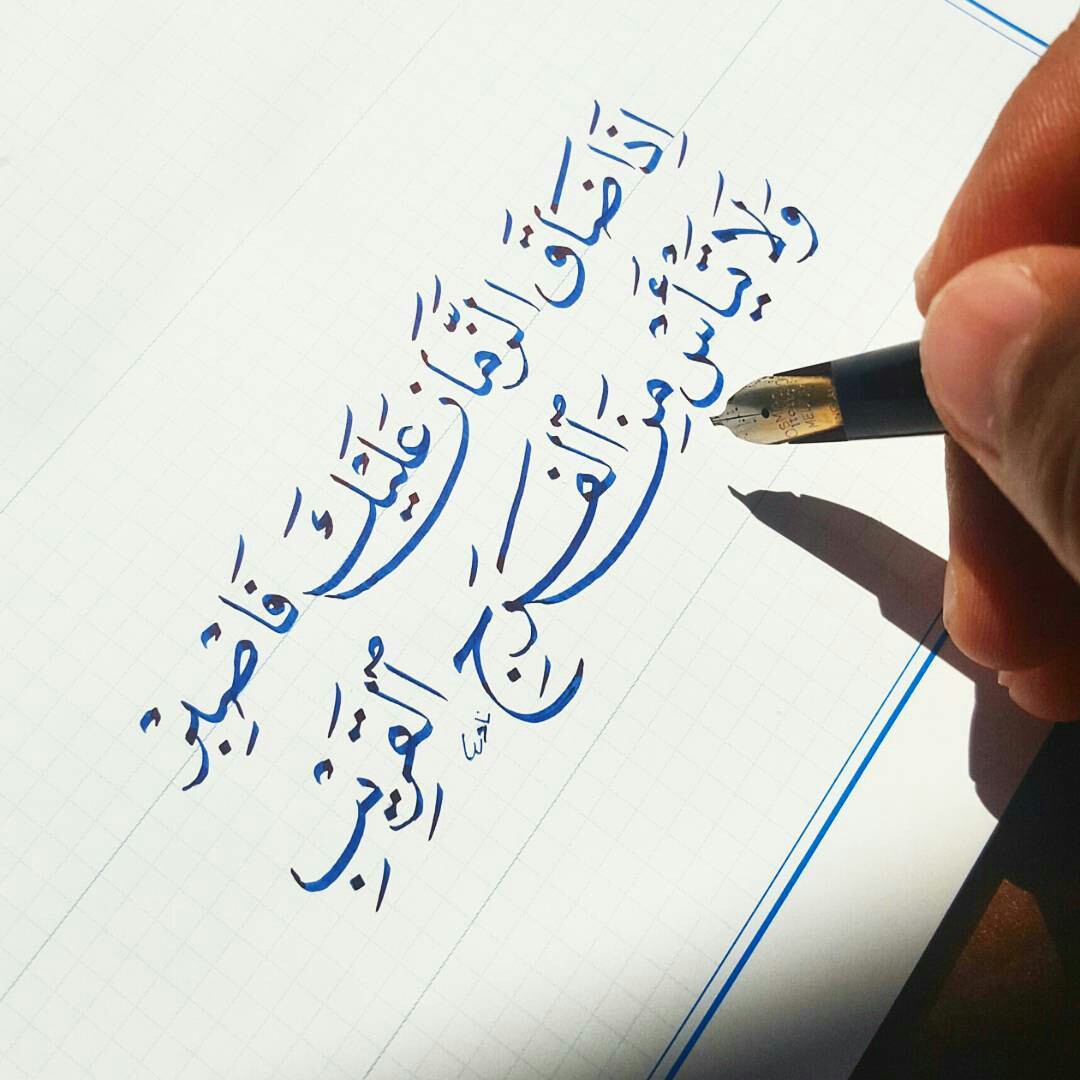 اِذَا ضَاقَ الزَّمَانُ عَلَيْكَ فَاصْبِرْ
وَلَا تَيْأَسْ مِنَ الْفَرَجِ الْقَرِيْبِ